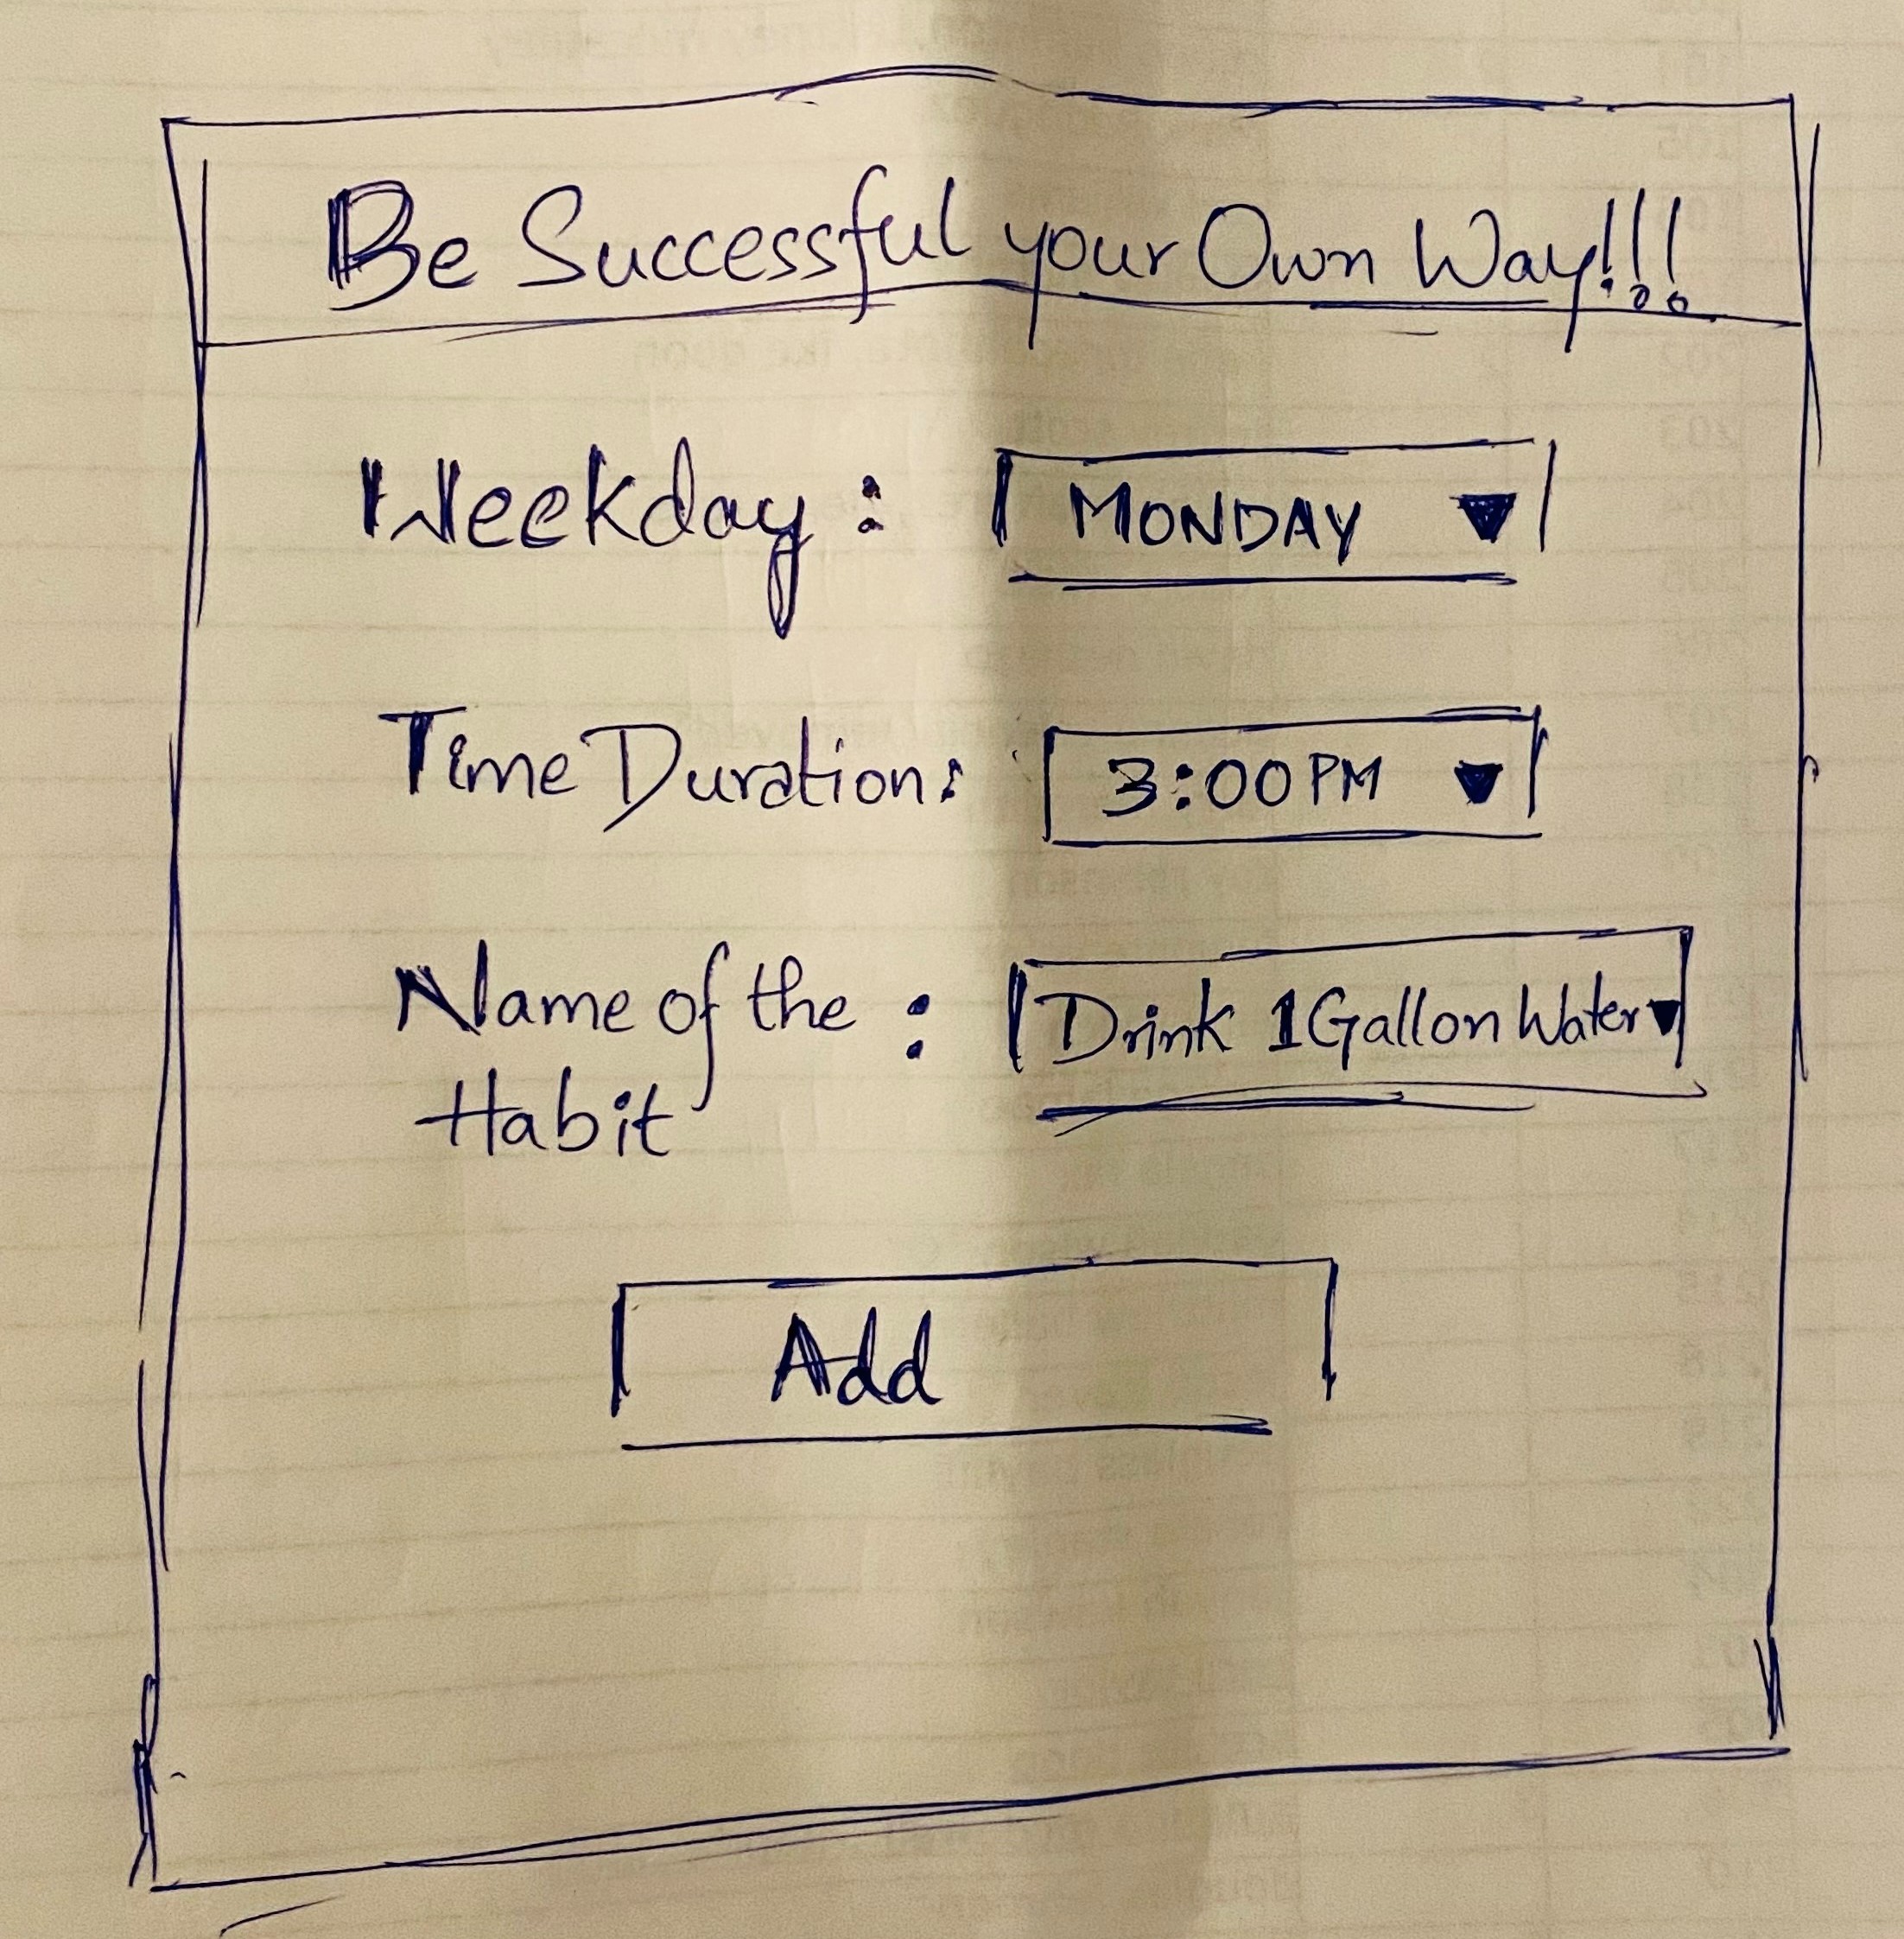 Be Successful your Own Way!!!
Weekday : MONDAY
Time Duration: 3:00 PM
Name of the : Drink 1 Gallon Water
Habit
Add